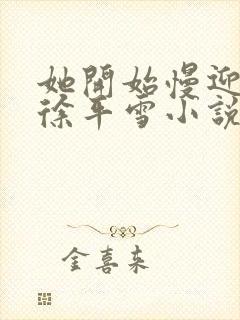 她開始慢迎
徐平雪小說
金喜来